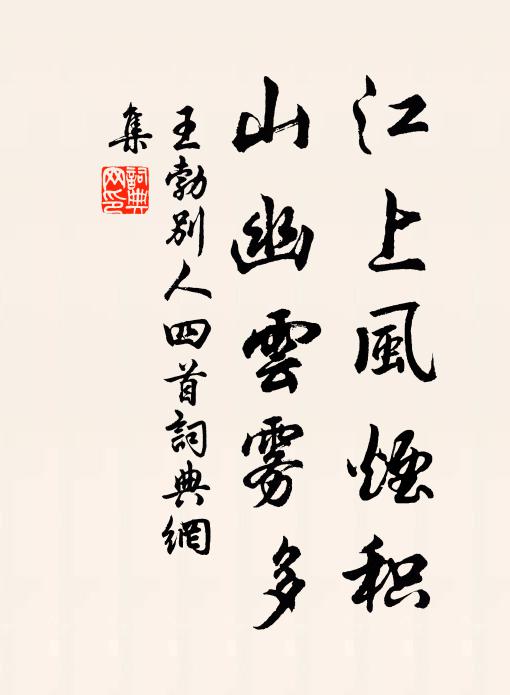 江上風煙积
山幽雲霧多
王勃別人四首詞典網
集
詞典
网印